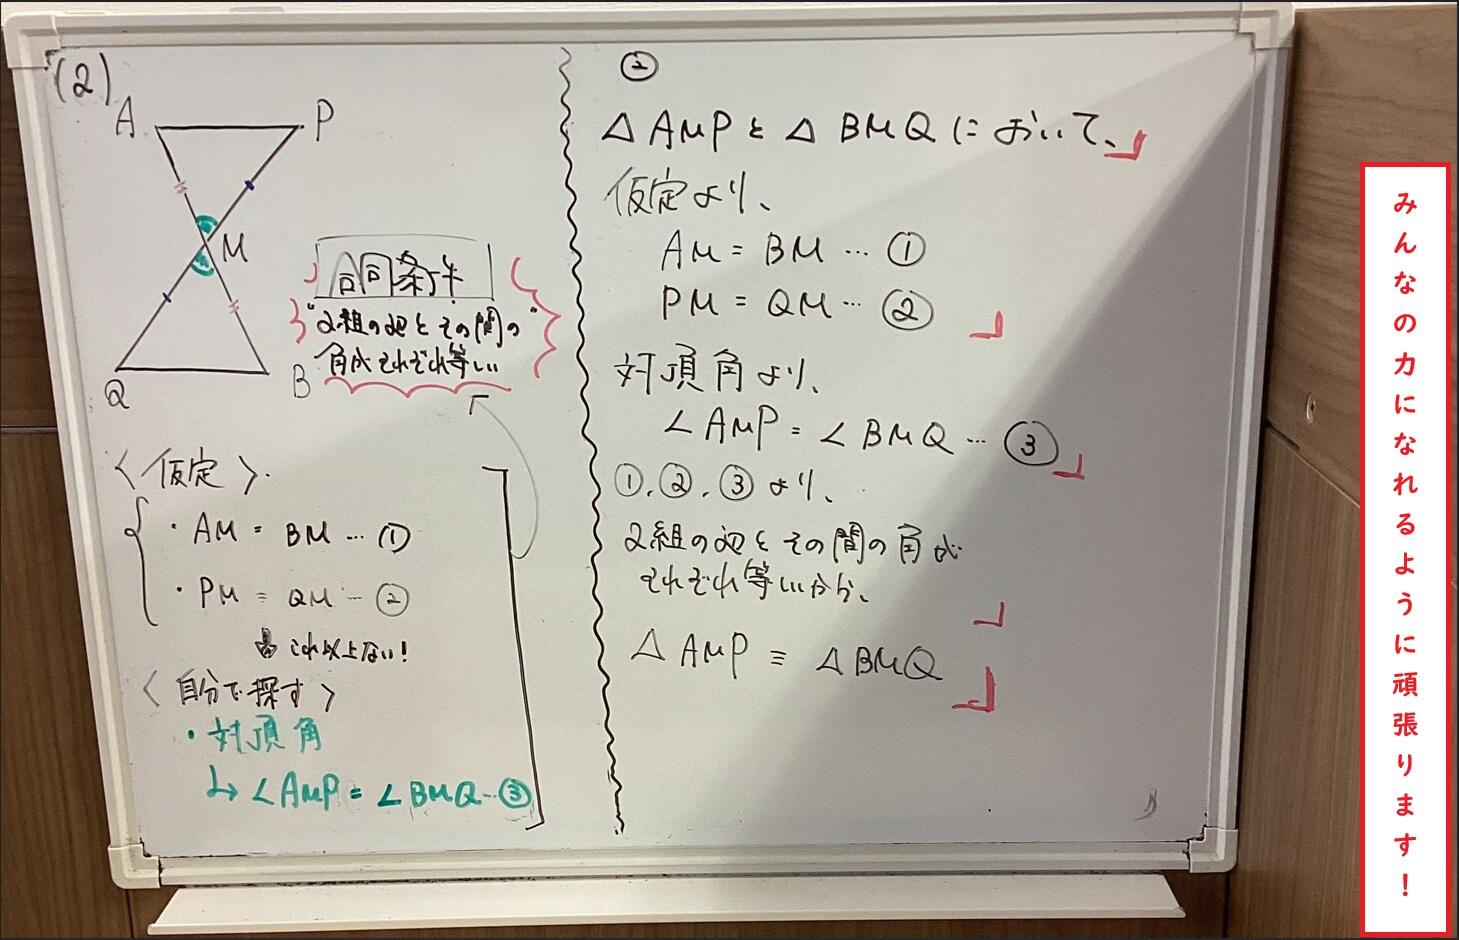 (2)
A
P
M
Q
B
合同条件
"2組の辺とその間の"
角がそれぞれ等しい
〈仮定〉
・AM = BM … ①
・PM = QM … ②
これ以上ない!
〈自分で探す〉
・対頂角
↳ ∠AMP = ∠BMQ … ③
②
△AMPと△BMQにおいて、
仮定より、
AM = BM … ①
PM = QM … ②
対頂角より、
∠AMP = ∠BMQ … ③
①, ②, ③ より、
2組の辺とその間の角が
それぞれ等しいから、
△AMP ≡ △BMQ
みんなの力になれるように頑張ります!